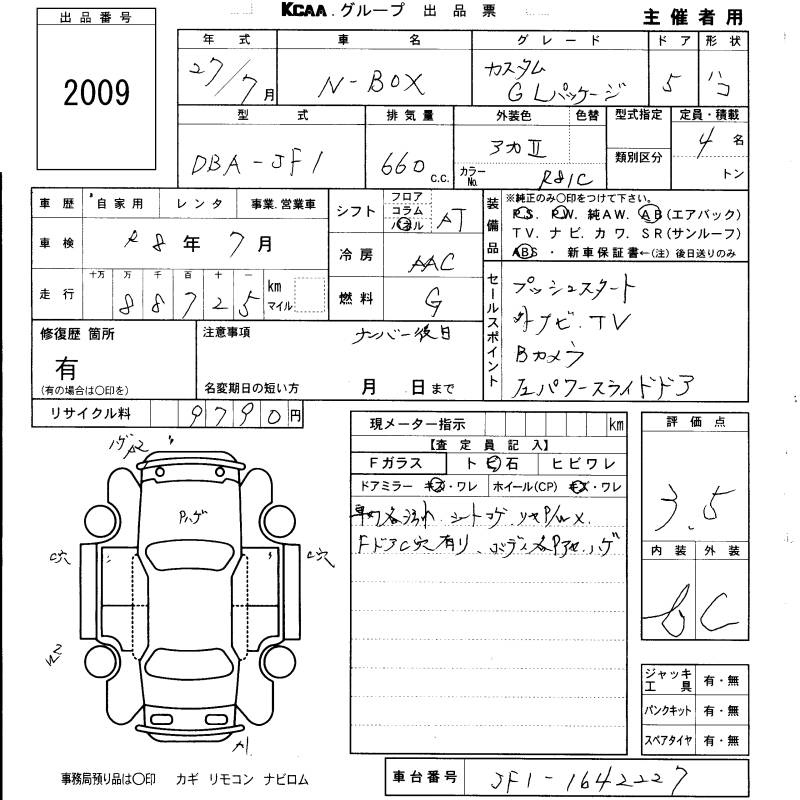 KCAA.グループ 出品票
主催者用
出品番号
2009
年式 車名 グレード ドア 形状
27/7月 N-BOX カスタム GLパッケージ 5 ハコ
型式 排気量 外装色 色替 型式指定 定員・積載
DBA-JF1 660 c.c. アカII カラーNo. R81C 類別区分 4名 トン
車歴 自家用 レンタ 事業.営業車
車検 R8年7月
走行 十万 万 千 百 十 一 km マイル
88725
シフト フロア コラム パネル AT
冷房 AAC
燃料 G
装備品
※純正のみ〇印をつけて下さい。
P.S. P.W. 純AW. AB(エアバック)
TV. ナビ. カワ. SR(サンルーフ)
ABS ・ 新車保証書←(注) 後日送りのみ
セールスポイント
プッシュスタート
外ナビ.TV
Bカメラ
左パワースライドドア
修復歴 箇所
有
(有の場合は〇印を)
注意事項 ナンバー後日
名変期日の短い方 月 日まで
リサイクル料 9790円
現メーター指示 km
【査定員記入】
Fガラス トビ石 ヒビワレ
ドアミラー キズ・ワレ ホイール(CP) キズ・ワレ
FドアC穴有り
評価点
3.5
内装 外装
C
ジャッキ 工具 有・無
パンクキット 有・無
スペアタイヤ 有・無
ハゲ A2
Pハゲ
C穴
C穴
A1
事務局預り品は〇印 カギ リモコン ナビロム
車台番号 JF1-1642227